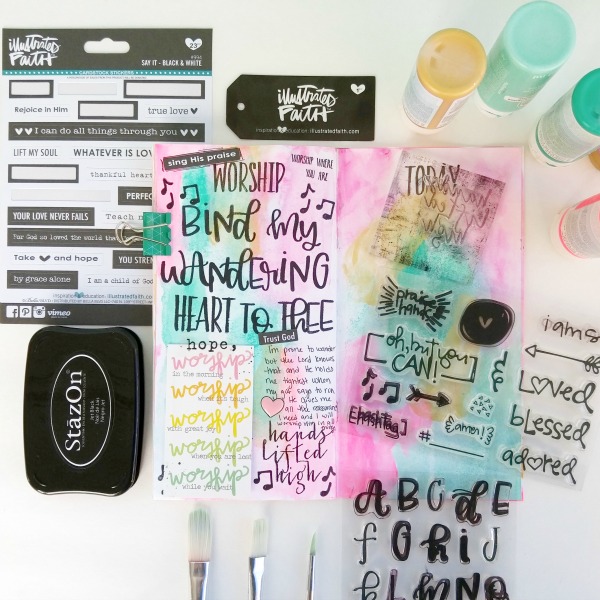 illustrated
FAITH
23
SAY IT - BLACK & WHITE
CARDSTOCK STICKERS
Rejoice in Him
true love
I can do all things through you
LIFT MY SOUL
WHATEVER IS LOV
thankful hear
PERFEC
YOUR LOVE NEVER FAILS
Teach
For God so loved the world that
Take and hope
YOU STRE
by grace alone
I am a child of God
inspiration education illustratedfaith.com
vimeo
illustrated
FAITH
inspiration education illustratedfaith.com
StazOn
Jet Black
sing His praise
WORSHIP
WORSHIP WHERE
YOU ARE
Bind my
WANDERING
HEART TO THEE
hope,
worship
in the morning
worship
when it's tough
worship
with great joy
worship
when you are lost
worship
while you wait
Trust God
I'm prone to wander
but the Lord knows
that and He holds
me tightest when
my
He gives me
all the
need and I will
worship Him in all
hands
lifted
high
TODAY
praise
hands
oh, but you
CAN!
#
{amen!}
i am so
Loved
blessed
adored
A B C D E
f G H i J
k L M N O